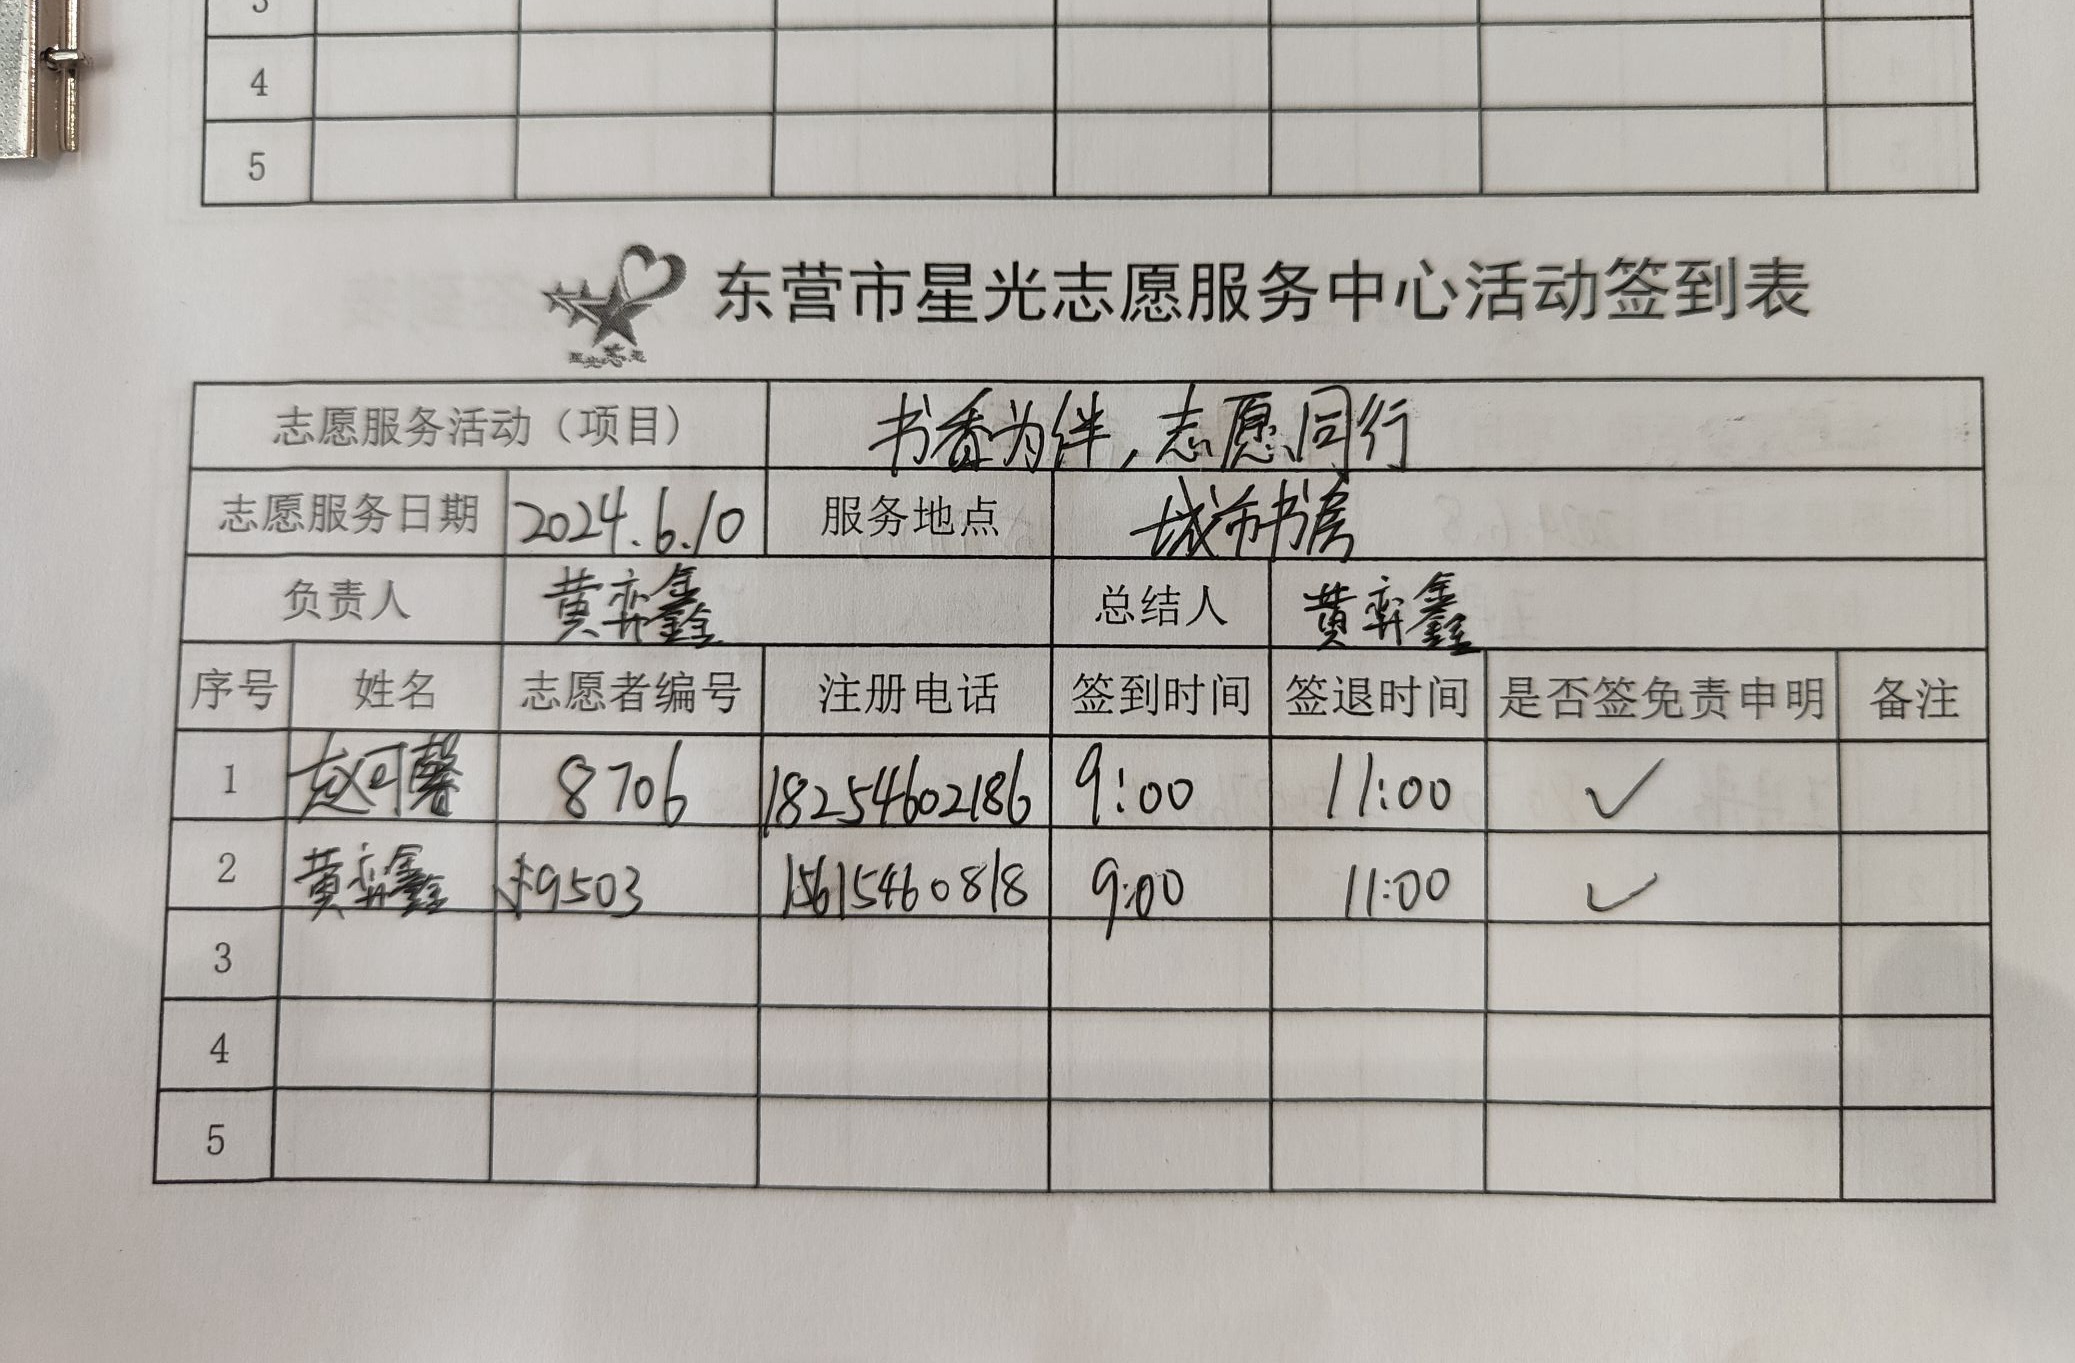 3
4
5
东营市星光志愿服务中心活动签到表
志愿服务活动（项目） 书香为伴,志愿同行
志愿服务日期 2024.6.10 服务地点 城市书房
负责人 黄弈鑫 总结人 黄弈鑫
序号 姓名 志愿者编号 注册电话 签到时间 签退时间 是否签免责申明 备注
1 赵可馨 8706 18254602186 9:00 11:00 ✓
2 黄弈鑫 9503 15615460818 9:00 11:00 ✓
3
4
5